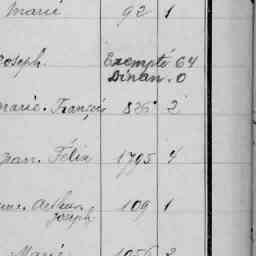 Marie 92 1
Joseph. Exempté 64
Dinan. 0
Marie. François 836 2
Jean. Félix 1795 4
109 1
Joseph
Marie 1056 2